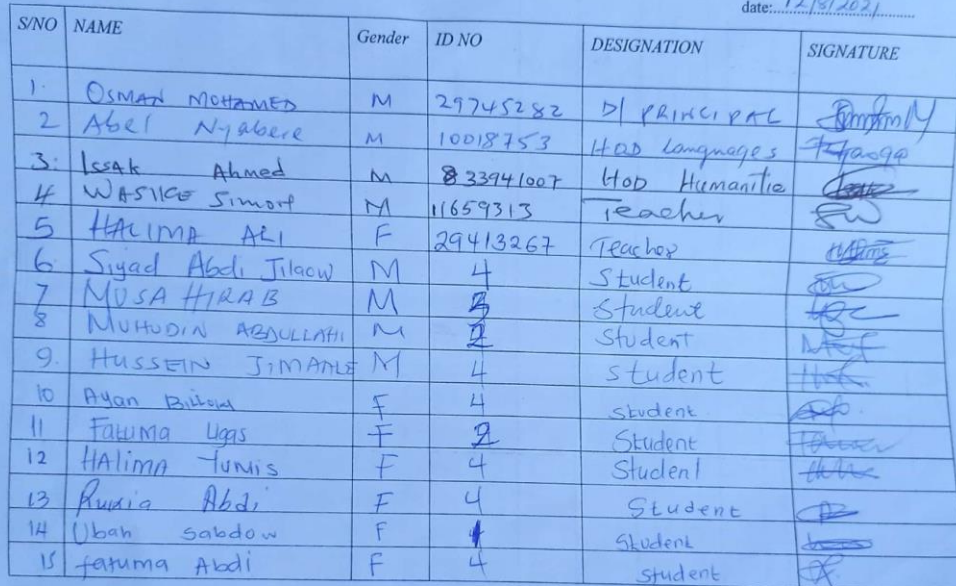 date: 12/8/2021
S/NO NAME Gender ID NO DESIGNATION SIGNATURE
1. OSMAN MOHAMED M 29745282 D/ PRINCIPAL
2 Abel Nyabere M 10018753 HOD Languages
3. Issak Ahmed M 33941007 HOD Humanitie
4 WASIKE Simon M 11659313 Teacher
5 HALIMA ALI F 29413267 Teacher
6. Siyad Abdi Jilaow M 4 Student
7 MUSA HIRAB M 3 Student
8 MUHUDIN ABDULLAHI M 2 Student
9. HUSSEIN JIMALE M 4 Student
10 Ayan Billow F 4 Student
11 Fatuma Ugas F 2 Student
12 HAlima Yunis F 4 Student
13 Ruxia Abdi F 4 Student
14 Ubah Sabdow F Student
15 fatuma Abdi F 4 student